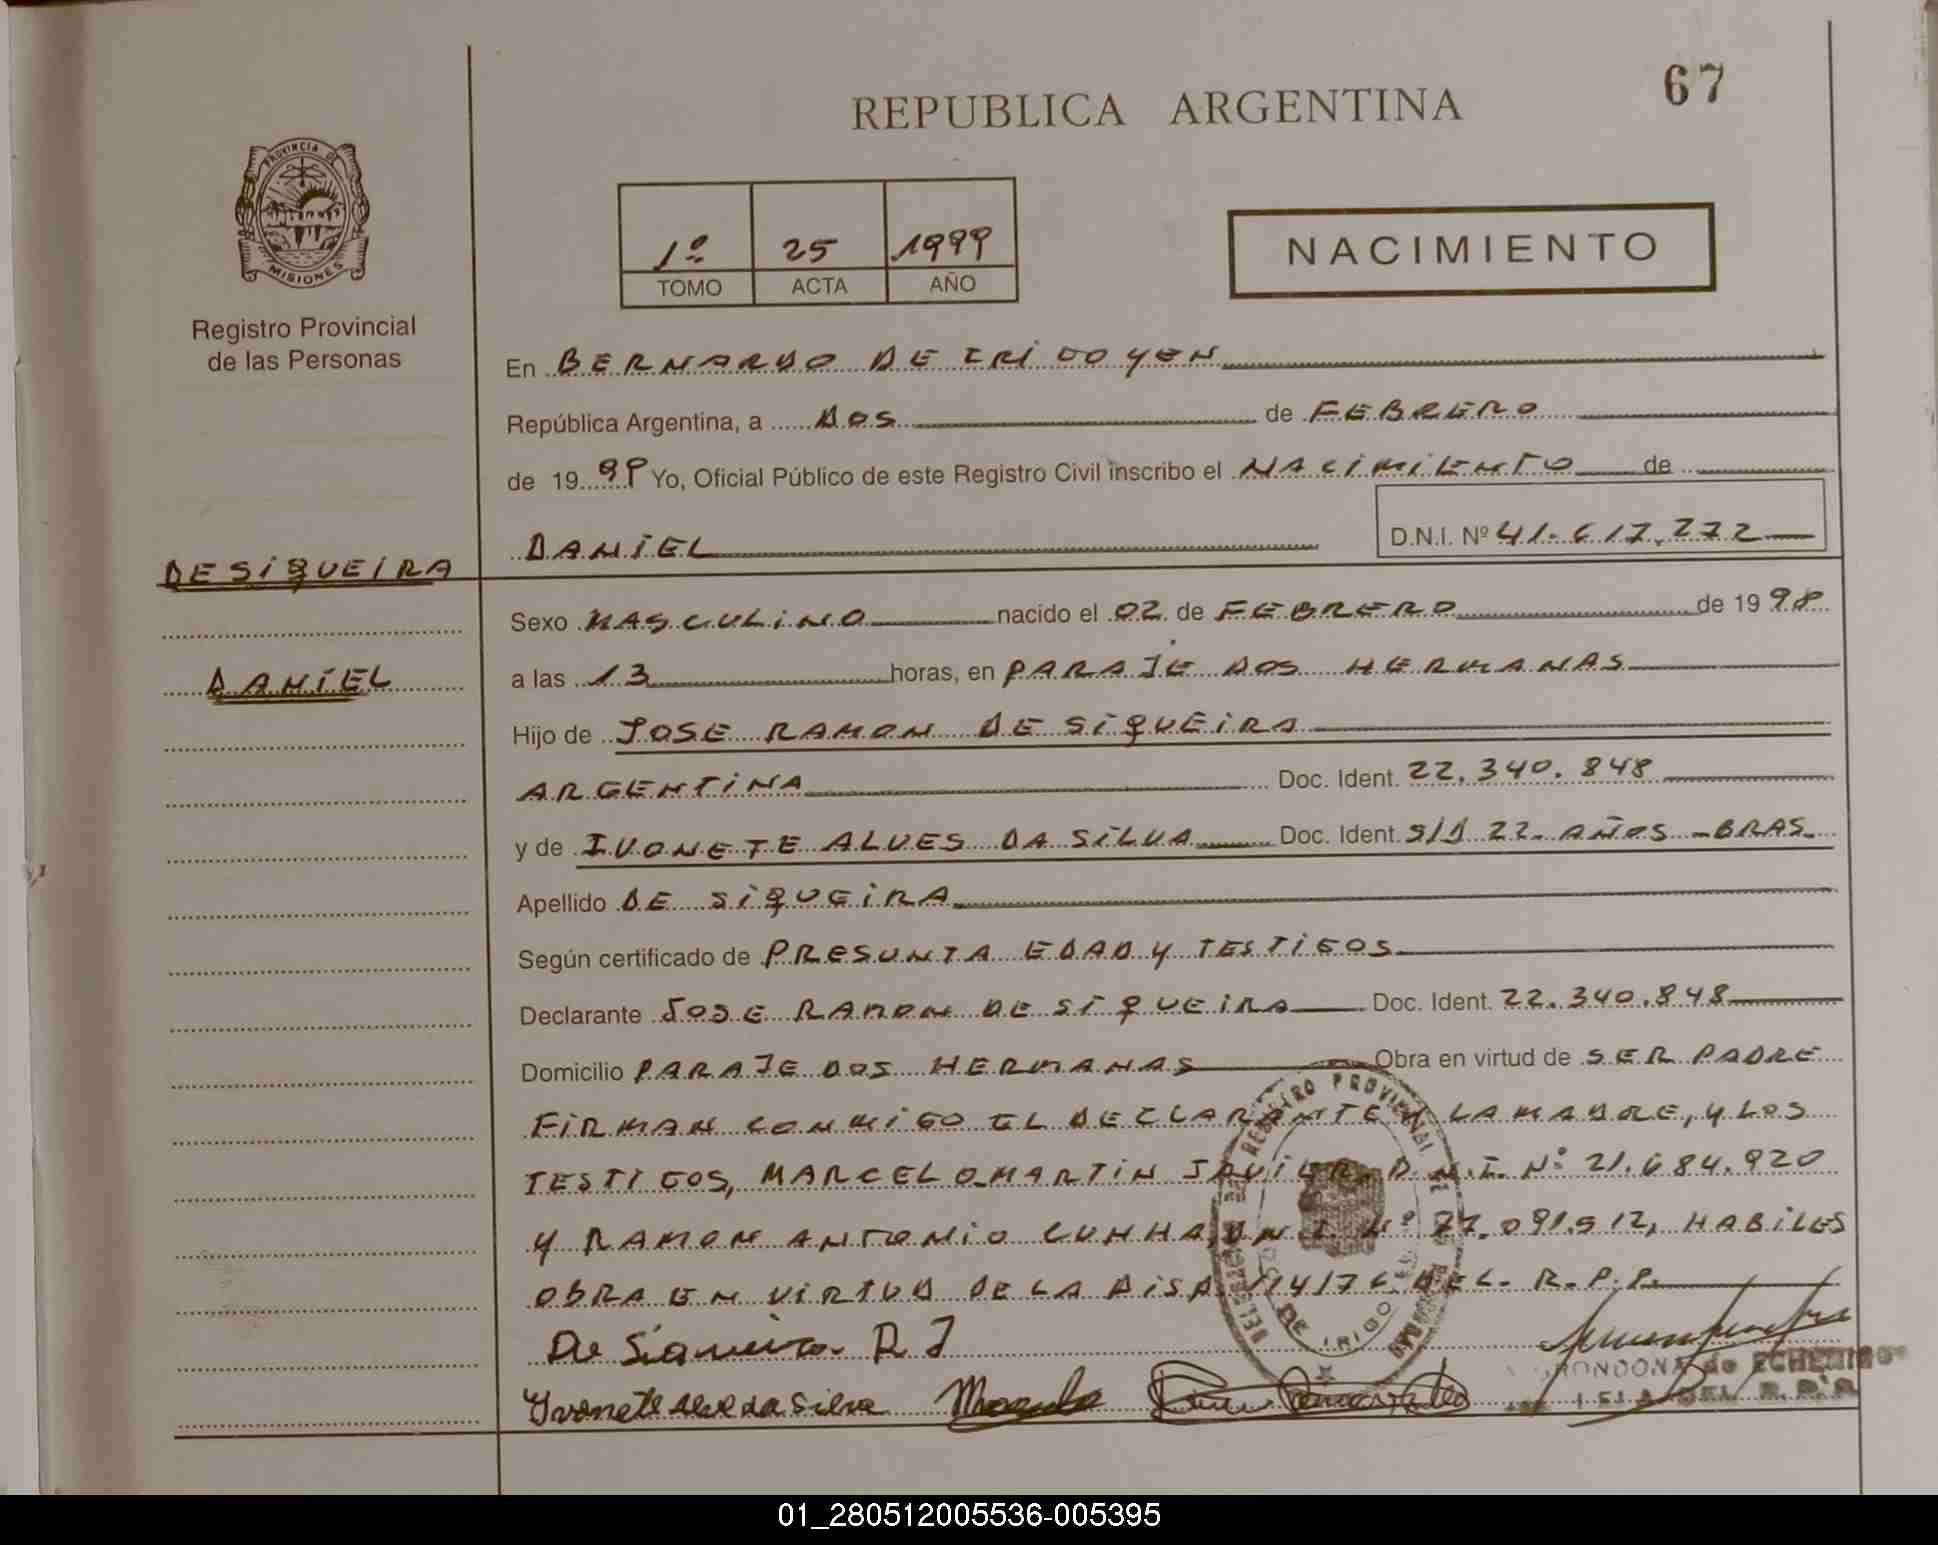 67
REPUBLICA ARGENTINA
PROVINCIA DE
MISIONES
1º 25 1999
TOMO ACTA AÑO
NACIMIENTO
Registro Provincial
de las Personas
En BERNARDO DE IRIGOYEN
República Argentina, a DOS de FEBRERO
de 1999 Yo, Oficial Público de este Registro Civil inscribo el NACIMIENTO de
DANIEL D.N.I. Nº 41.617.272
DE SiQUEiRA
Sexo MASCULINO nacido el 02 de FEBRERO de 1998
a las 13 horas, en PARAJE DOS HERMANAS
DANIEL
Hijo de JOSE RAMON DE SiQUEiRA
ARGENTINA Doc. Ident. 22.340.848
y de IVONETE ALVES DA SILVA Doc. Ident. S/D 22 AÑOS - BRAS.
Apellido DE SiQUEiRA
Según certificado de PRESUNTA EDAD Y TESTIGOS
Declarante JOSE RAMON DE SiQUEiRA Doc. Ident. 22.340.848
Domicilio PARAJE DOS HERMANAS Obra en virtud de SER PADRE
FIRMAN CONMIGO EL DECLARANTE, LA MADRE, Y LOS
TESTIGOS, MARCELO MARTIN JAVIER D.N.I. Nº 21.684.920
Y RAMON ANTONIO CUNHA, D.N.I. Nº .091.512, HABILES
OBRA EN VIRTUD DE LA DISP. 14/76 DEL R.P.P.
REGISTRO PROVINCIAL DE
DE IRIGO
De Siqueira R J
Yvonete Alve da Silva
RONDONA de
DEL R.P.P.
01_280512005536-005395